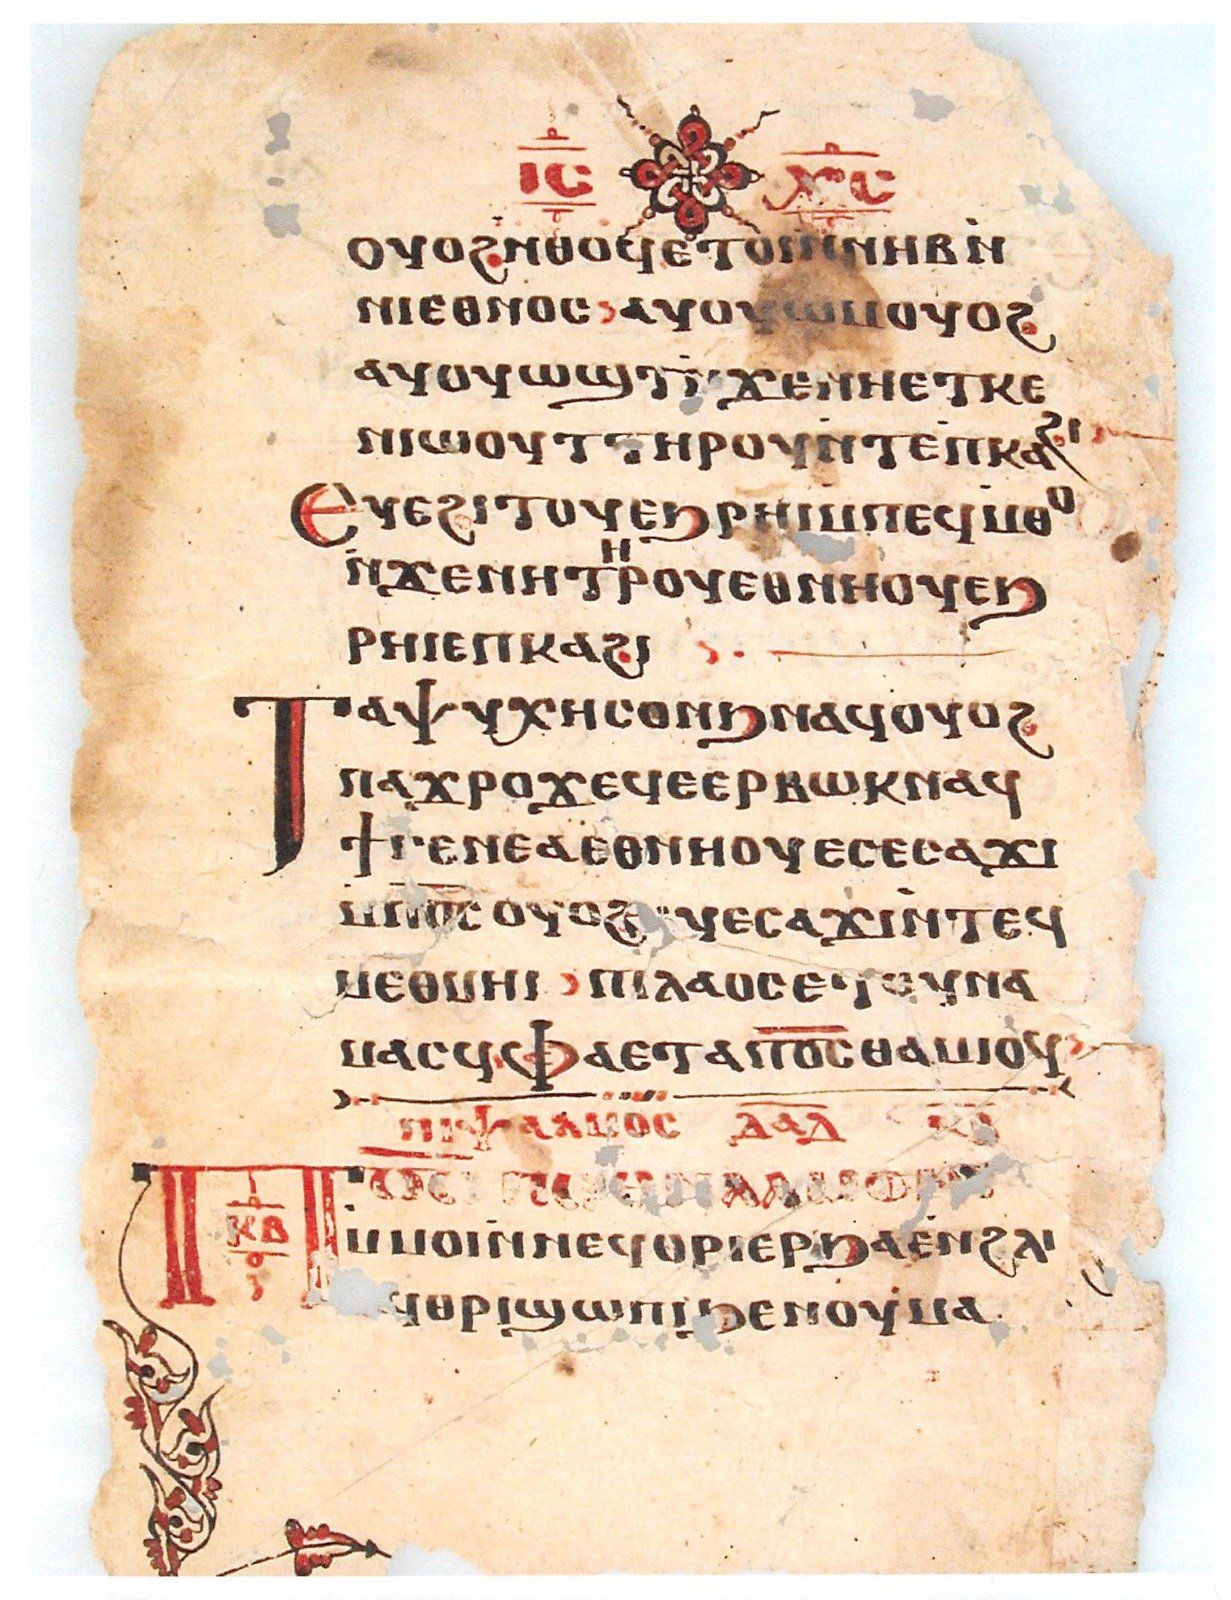 ⲓⲥ ⲭⲥ
ⲟⲩⲟϩ ⲛⲑⲟϥ ⲉⲧⲟⲓ ⲛⲛⲏⲃ ⲛ̇
ⲛⲓⲉⲑⲛⲟⲥ ⲁⲩⲟⲩⲱⲙ ⲟⲩⲟϩ
ⲁⲩⲟⲩⲱϣⲧ ⲛϫⲉ ⲛⲏⲉⲧⲕⲉ
ⲛⲓⲱⲟⲩⲧ ⲧⲏⲣⲟⲩ ⲛ̇ⲧⲉ ⲡⲕⲁϩⲓ
ⲉⲩⲉϩⲓⲧⲟⲩ ⲉϧⲣⲏⲓ ⲙⲡⲉϥⲙⲑⲟ
ⲛ̇ϫⲉ ⲛⲏ ⲧⲏⲣⲟⲩ ⲉⲑⲛⲏⲟⲩ ⲉϧ
ⲣⲏⲓ ⲉⲡⲕⲁϩⲓ
ⲧⲁⲯⲩⲭⲏ ⲥⲟⲛϧ ⲛⲁϥ ⲟⲩⲟϩ
ⲡⲁϫⲣⲟϫ ⲉϥⲉⲉⲣⲃⲱⲕ ⲛⲁϥ
ϯⲅⲉⲛⲉⲁ ⲉⲑⲛⲏⲟⲩ ⲉⲥⲉⲥⲁϫⲓ
ⲙⲡⲟ̅ⲥ̅ ⲟⲩⲟϩ ⲉⲩⲉⲥⲁϫⲓ ⲛ̇ⲧⲉϥ
ⲙⲉⲑⲙⲏⲓ ⲡⲓⲗⲁⲟⲥ ⲉⲧⲟⲩⲛⲁ
ⲙⲁⲥϥ ⲫⲁ ⲉⲧⲁ ⲡⲟ̅ⲥ̅ ⲑⲁⲙⲓⲟϥ
ⲡⲓⲯⲁⲗⲙⲟⲥ ⲇⲁ̅ⲇ̅
ⲡ
ⲕⲃ
ⲙ̇ⲙⲟⲓ ⲛ̇ⲛⲉϥⲑⲣⲓⲉⲣϧⲁⲉ ⲛ̇ϩⲗⲓ
ⲁϥⲑⲣⲓϣⲱⲡⲓ ϧⲉⲛ ⲟⲩⲙⲁ